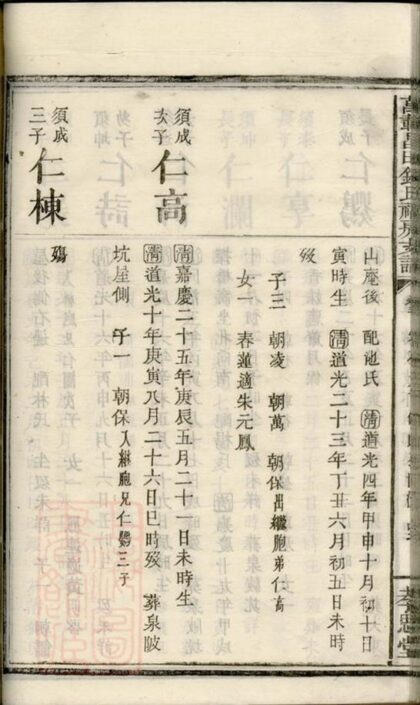 山庵後 配池氏 清道光四年甲申十月初十日
寅時生 清道光二十三年丁丑六月初五日未時
歿
子三 朝凌 朝萬 朝保出繼胞弟仁高
女一 春蓮適朱元鳳
須成
次子
仁高
清嘉慶二十五年庚辰五月二十一日未時生
清道光十年庚寅八月二十六日巳時歿 葬泉陂
坑屋側 子一 朝保入繼胞兄仁鸚三子
須成
三子
仁棟
殤